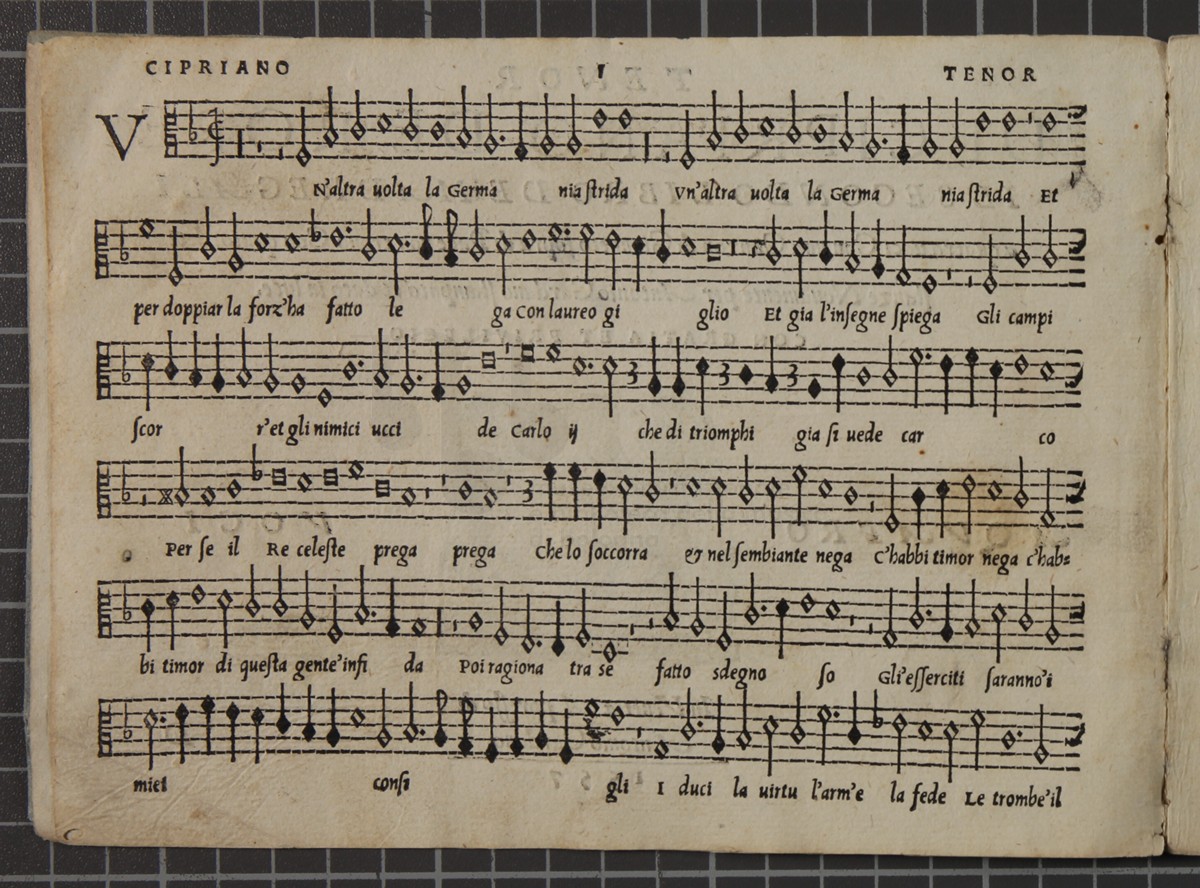 CIPRIANO I TENOR
V
N'altra uolta la Germa nia strida Vn'altra uolta la Germa nia strida Et
per doppiar la forz'ha fatto le ga Con laureo gi glio Et gia l'insegne spiega Gli campi
scor r'et gli nimici ucci de Carlo ij che di triomphi gia si uede car co
Per se il Re celeste prega prega Che lo soccorra & nel sembiante nega C'habbi timor nega c'hab=
bi timor di questa gente'infi da Poi ragiona tra se fatto sdegno so Gli'esserciti saranno'i
miei consi gli I duci la uirtu l'arm'e la fede Le trombe'il